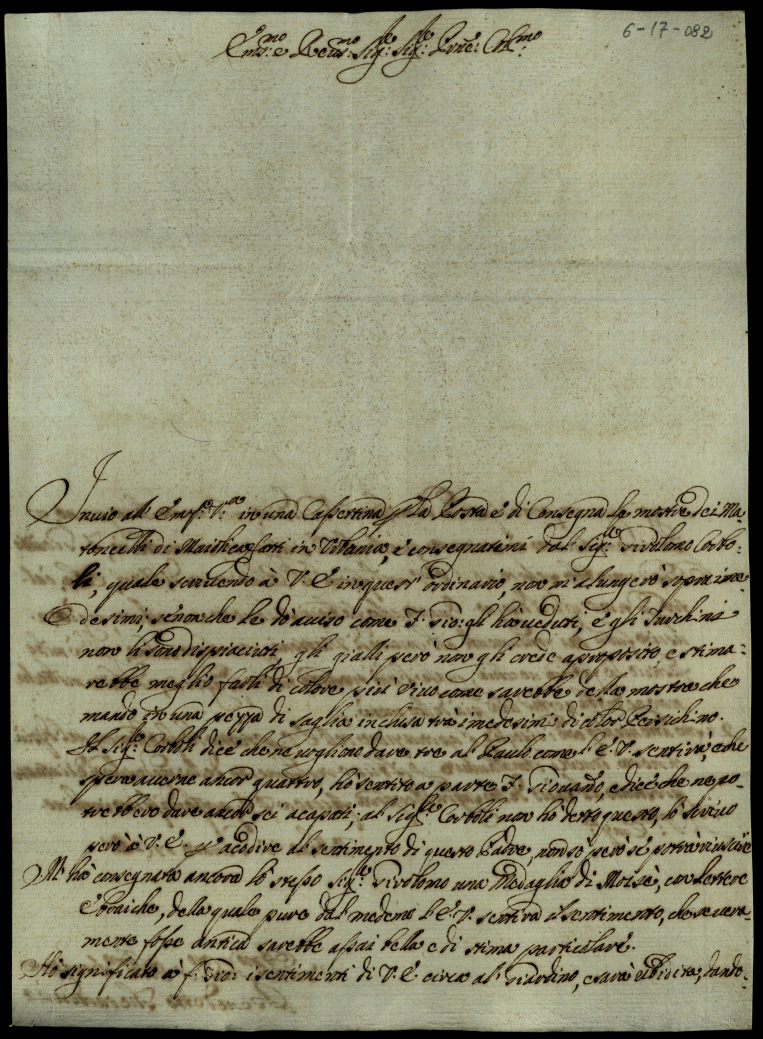 6-17-082
Em.mo e Reu.mo Sig.re Sig.re Prōne: Col.mo
Inuio all' Em.za V.ra in una Cassettina p la Posta è di Consegna le mostre dei Ma-
toncelli di Maiolica fatti in Vrbania, è consegnatimi dal Sig.re Girolamo Corbo-
li, quale scriuendo à V. E. in quest' ordinario, non m' alungerò sopra ime-
desimi, se non che le dò auiso come F. Gio: gli hà ueduti, e gli Turchini
non li sono dispiaciuti, gli gialli però non gli crede aproposito, e stima-
rebbe meglio farli di colore più viuo come sarebbe della mostra che
mando in una pezza di saglia inclusa trà imedesimi di color Persichino.
Il Sig.re Corboli dice che ne uogliono dare tre al Paulo. come l' E. V. sentirà, e che
spera auerne ancor quattro, hò sentito a parte F. Giouanō, e dice che ne po-
trebbero dare ancor sei acapati; al Sig.re Corboli non hò detto questo, lo scriuo
però à V. E. p acodire al sentimento di questo Padre, non so però se potrà riuscire
Mi hà consegnata ancora lo stesso Sig.re Girolamo una Medaglia di Moisè, con lettere
Ebraiche, della quale pure dal medemo l' E. V. sentirà il sentimento, che se uera-
mente fosse antica sarebbe assai bella e di stima particulare.
Hò significato à F. Gio: i sentimenti di V. E. circa al Giardino, e sarà ubidita, dando-